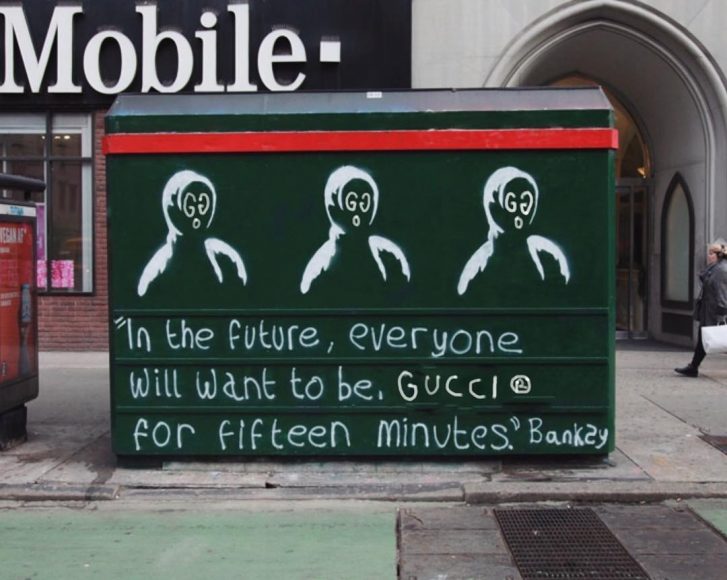 Mobile
GG GG GG
VEGAN AF
"In the future, everyone
will want to be. GUCCI ®
for fifteen minutes." Banksy